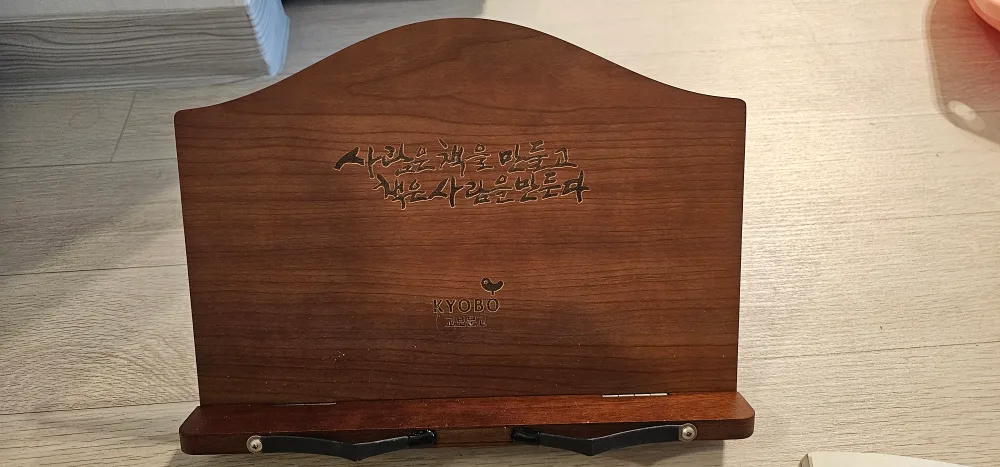 사람은 책을 만들고
책은 사람을 만든다
KYOBO
교보문고